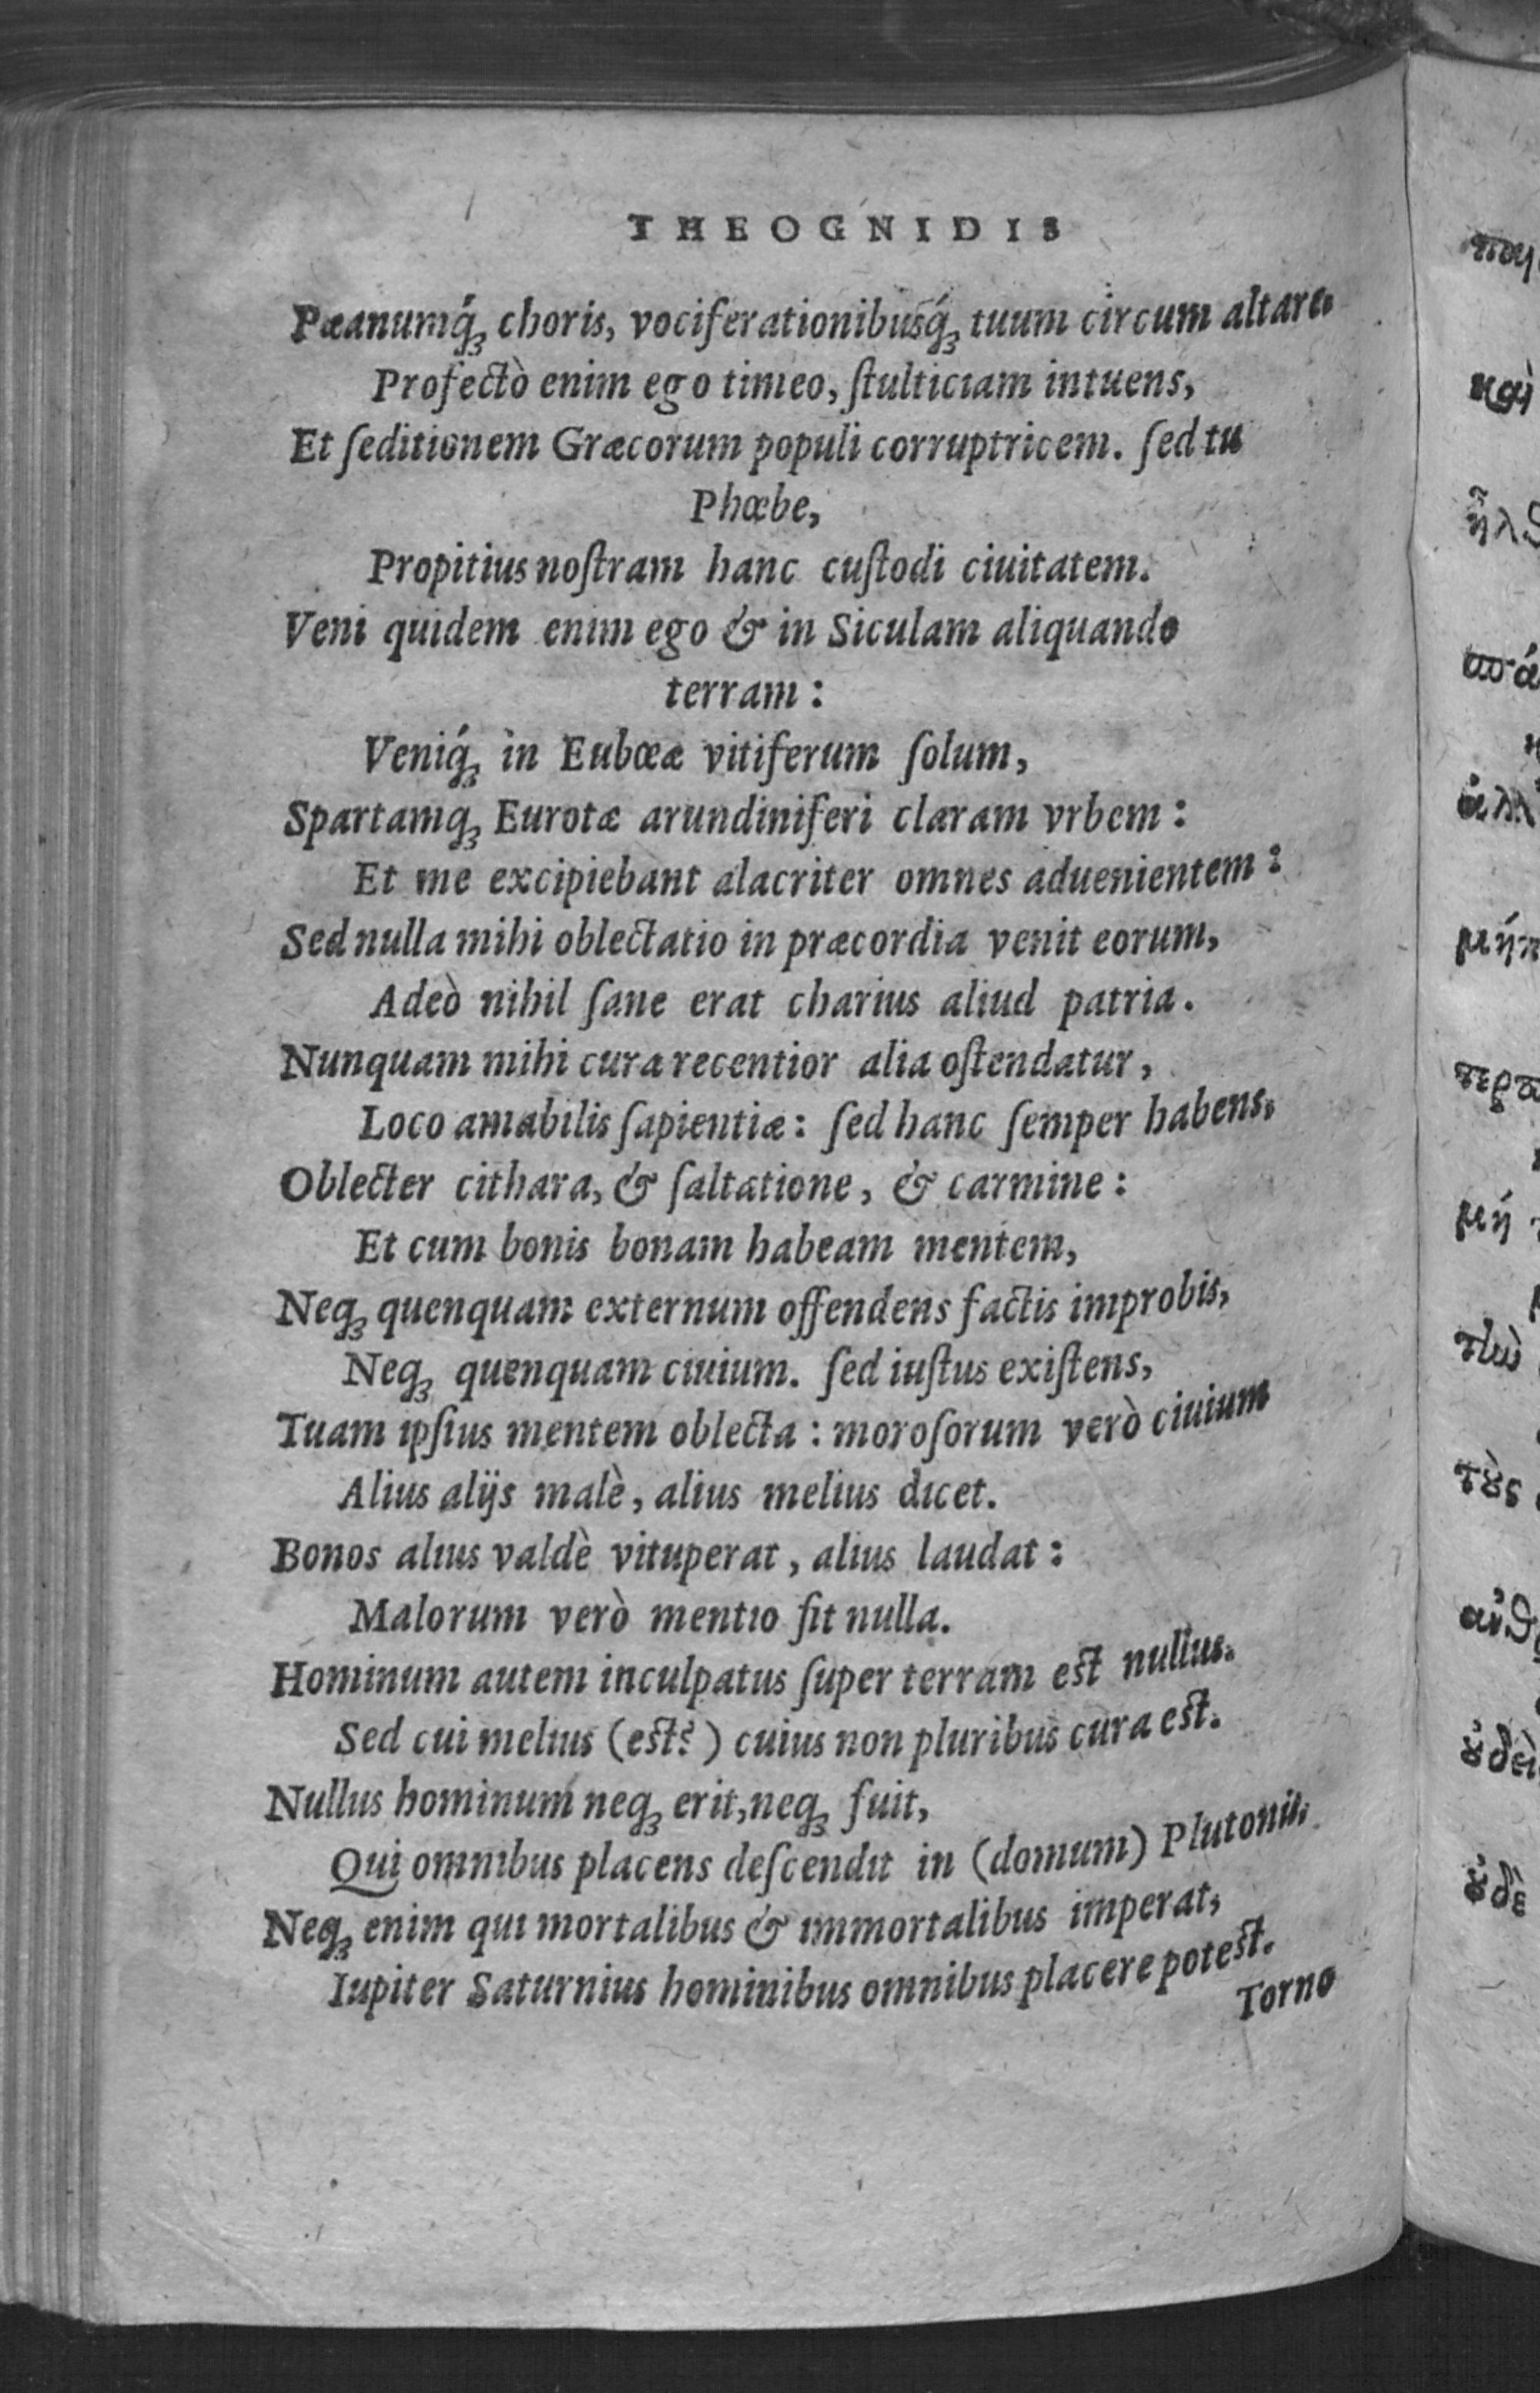 THEOGNIDIS
Pæanumq́ꝫ choris, vociferationibusq́ꝫ tuum circum altare.
Profectò enim ego timeo, ſtulticiam intuens,
Et ſeditionem Græcorum populi corruptricem. ſed tu
Phœbe,
Propitius noſtram hanc cuſtodi ciuitatem.
Veni quidem enim ego & in Siculam aliquando
terram:
Veniq́ꝫ in Eubœæ vitiferum ſolum,
Spartamqꝫ Eurotæ arundiniferi claram vrbem:
Et me excipiebant alacriter omnes aduenientem:
Sed nulla mihi oblectatio in præcordia venit eorum,
Adeò nihil ſane erat charius aliud patria.
Nunquam mihi cura recentior alia oſtendatur,
Loco amabilis ſapientiæ: ſed hanc ſemper habens,
Oblecter cithara, & ſaltatione, & carmine:
Et cum bonis bonam habeam mentem,
Neqꝫ quenquam externum offendens factis improbis,
Neqꝫ quenquam ciuium. ſed iuſtus exiſtens,
Tuam ipſius mentem oblecta: moroſorum verò ciuium
Alius alijs malè, alius melius dicet.
Bonos alius valdè vituperat, alius laudat:
Malorum verò mentio fit nulla.
Hominum autem inculpatus ſuper terram est nullus.
Sed cui melius (est?) cuius non pluribus cura est.
Nullus hominum neqꝫ erit, neqꝫ fuit,
Qui omnibus placens deſcendit in (domum) Plutonis.
Neqꝫ enim qui mortalibus & immortalibus imperat,
Iupiter Saturnius hominibus omnibus placere potest.
Torno